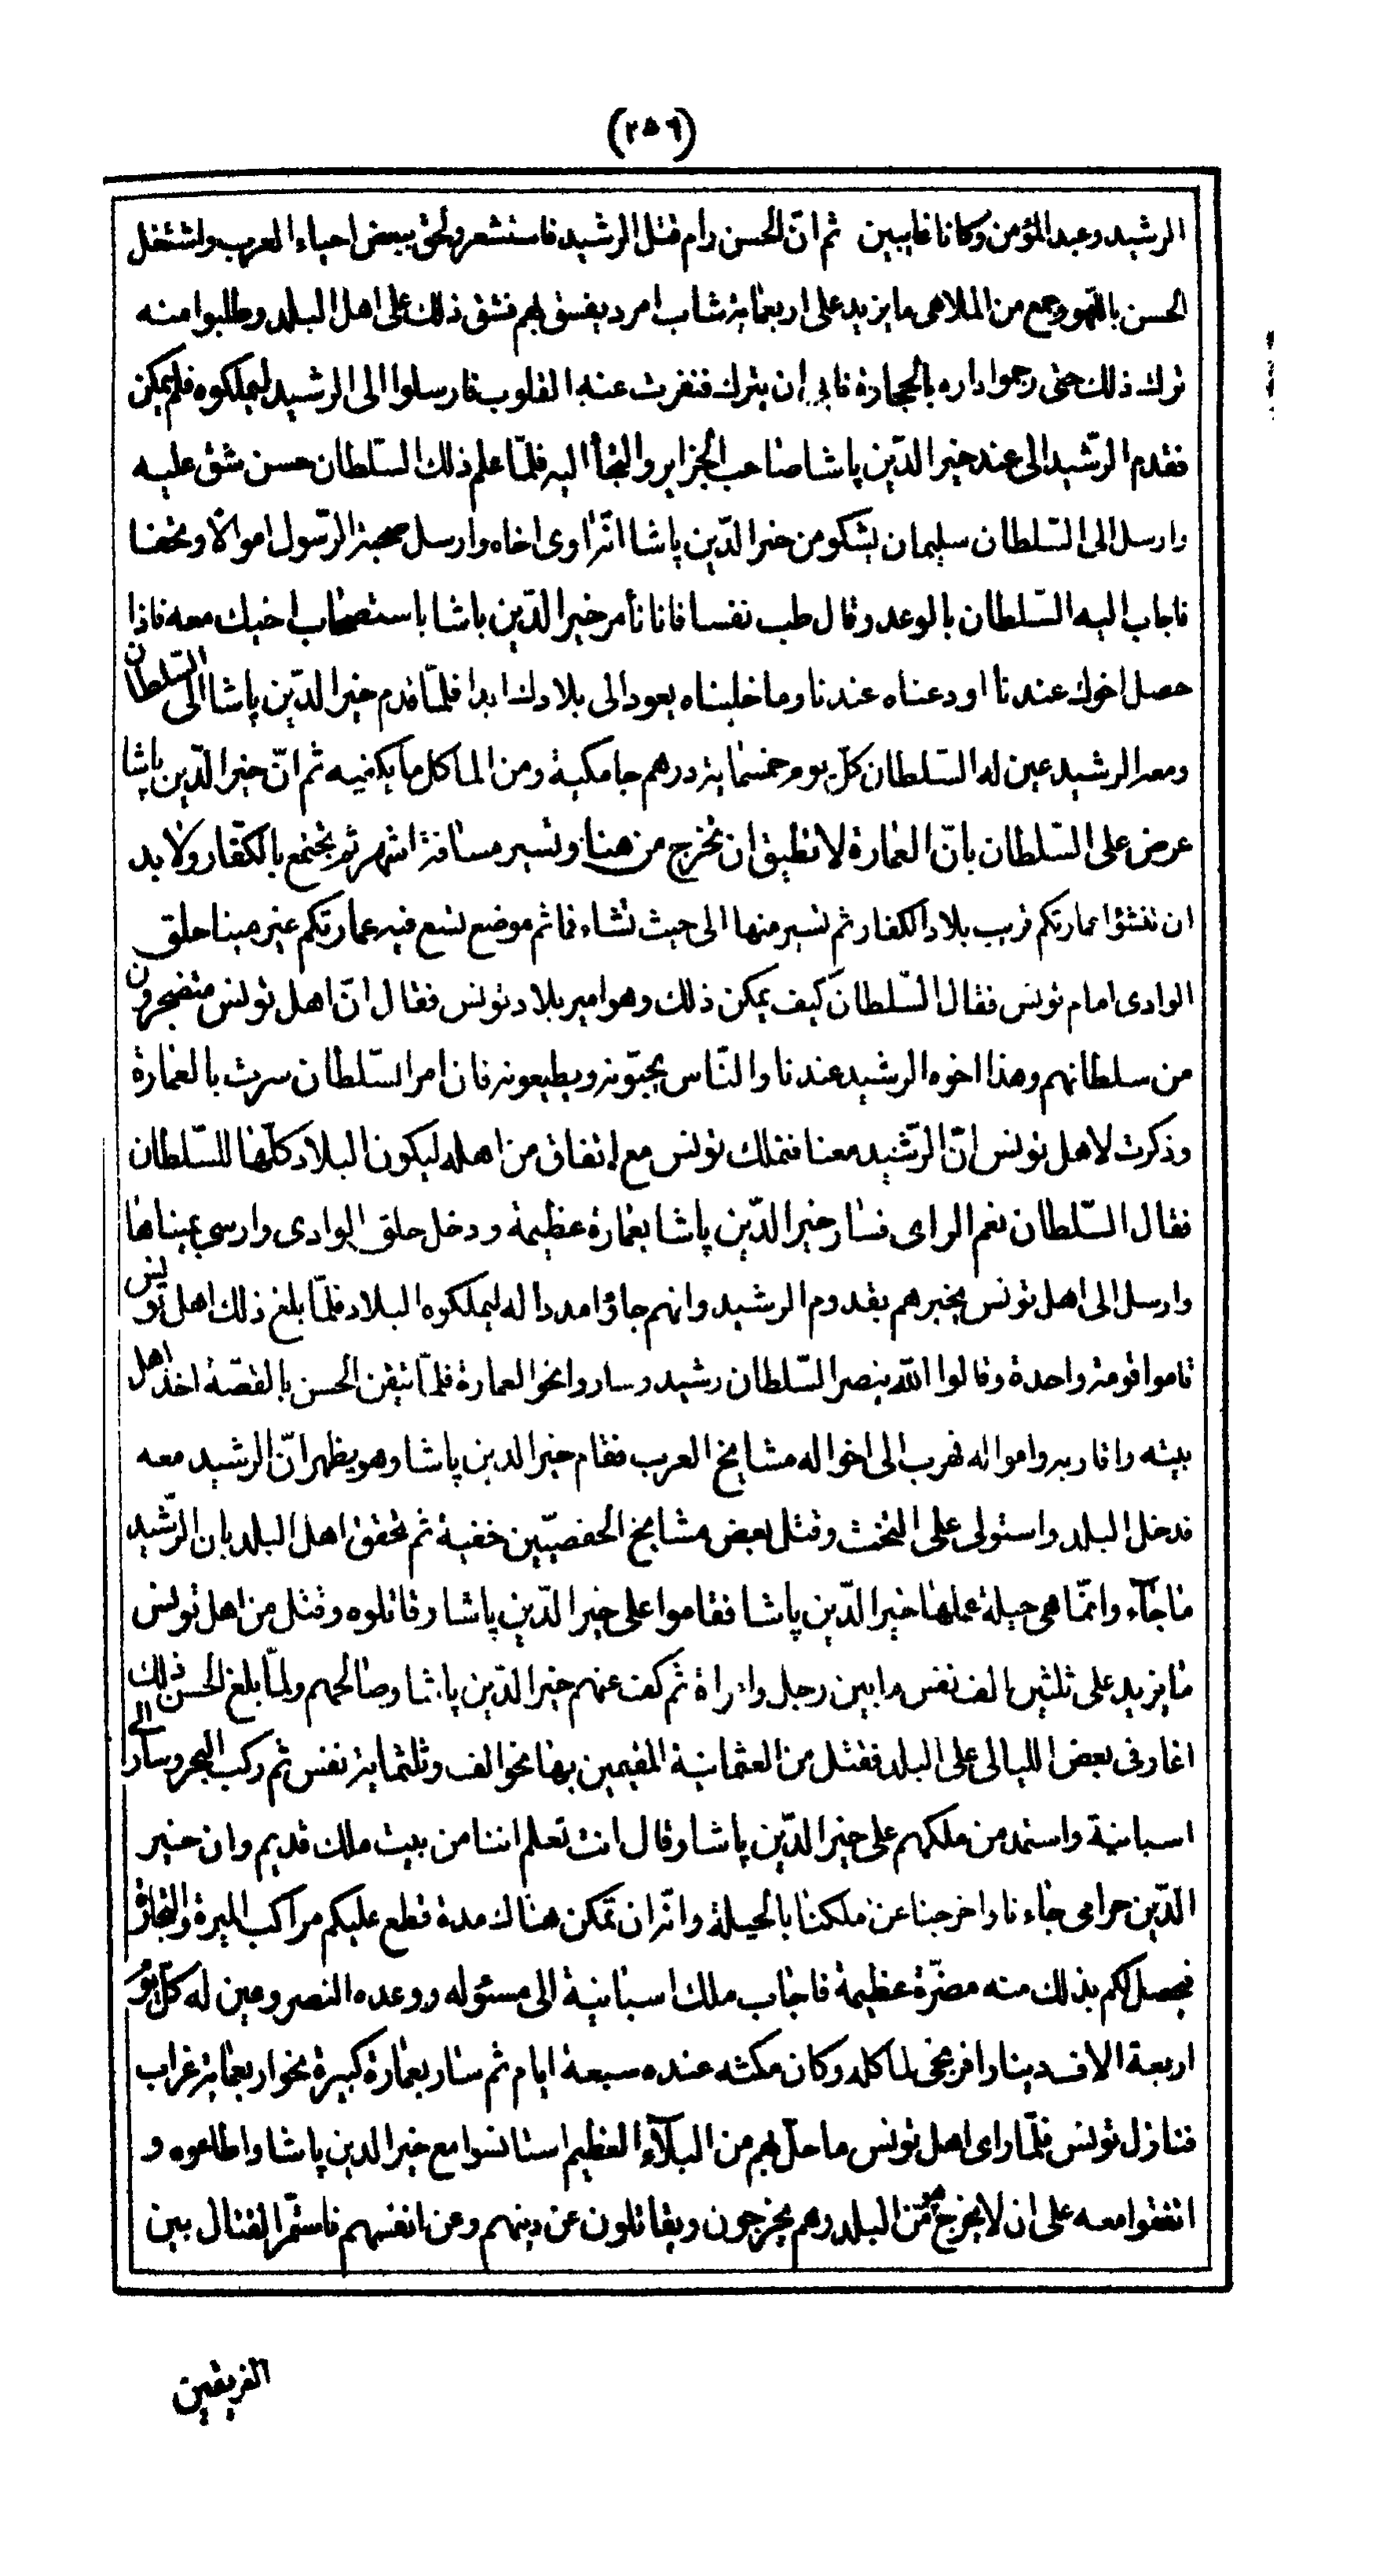 (٢٥٦)
الرشيد وعبد المؤمن وكانا غايبين ثم انّ الحسن رام قتل الرشيد فاستشعر ولحق ببعض احياء العرب واشتغل
الحسن باللهو وجمع من الملاهى ما يزيد على اربعماية شاب امرد يفسق بهم فشق ذلك على اهل البلد وطلبوا منه
ترك ذلك حتى رجموا داره بالحجارة فابى ان يترك فنفرت عنه القلوب فارسلوا الى الرشيد ليملكوه فلم يمكن
فقدم الرّشيد الى عند خير الدّين پاشا صاحب الجزاير والتجأ اليه فلمّا علم ذلك السّلطان حسن شق عليه
وارسل الى السّلطان سليمان يشكو من خير الدّين پاشا انّه اوى اخاه وارسل صحبة الرّسول اموالا وتحفا
فاجاب اليه السّلطان بالوعد وقال طب نفسا فانا نأمر خير الدّين باشا باستصحاب اخيك معه فاذا
حصل اخوك عندنا اودعناه عندنا وما خليناه يعود الى بلادك ابدا فلمّا قدم خير الدّين پاشا الى السّلطان
ومعه الرشيد عين له السّلطان كلّ يوم خمسماية درهم جامكية ومن الماكل ما يكفيه ثم انّ خير الدّين پاشا
عرض على السّلطان بانّ العمارة لا تطيق ان تخرج من هنا وتسير مسافة اشهر ثم تجتمع بالكفّار ولا بد
ان تفشؤا عمارتكم قريب بلاد الكفار ثم تسير منها الى حيث تشاء فما ثم موضع تسع فيه عمارتكم غير مينا حلق
الوادى امام تونس فقال السّلطان كيف يمكن ذلك وهو امير بلاد تونس فقال انّ اهل تونس متضجرون
من سلطانهم وهذا اخوه الرشيد عندنا والنّاس يحبّونه ويطيعونه فان امر السّلطان سرت بالعمارة
وذكرت لاهل تونس انّ الرّشيد معنا فتملك تونس مع اتفاق من اهله ليكون البلاد كلّها للسّلطان
فقال السّلطان نعم الراى فسار خير الدّين پاشا بعمارة عظيمة ودخل حلق الوادى وارسى بميناها
وارسل الى اهل تونس يخبرهم بقدوم الرشيد وانهم جاؤا مددا له ليملكوه البلاد فلمّا بلغ ذلك اهل تونس
قاموا قومة واحدة وقالوا الله ينصر السّلطان رشيد وساروا نحو العمارة فلمّا تيقن الحسن بالقصّة اخذ اهل
بيته واقاربه وامواله فهرب الى اخواله مشايخ العرب فقام خير الدين پاشا وهو يظهر انّ الرشيد معه
فدخل البلد واستولى على التخت وقتل بعض مشايخ الحفصيّين خفية ثم تحقق اهل البلد بان الرّشيد
ما جآء وانّما هى حيلة عملها خير الدّين پاشا فقاموا على خير الدّين پاشا وقاتلوه وقتل من اهل تونس
ما يزيد على ثلثين الف نفس ما بين رجل وامراة ثم كف عنهم خير الدّين پاشا وصالحهم ولمّا بلغ الحسن ذلك
اغار فى بعض الليالى على البلد فقتل من العثمانية المقيمين بها نحو الف وثلثماية نفس ثم ركب البحر وسار الى
اسبانية واستمد من ملكهم على خير الدّين پاشا وقال انت تعلم اننا من بيت ملك قديم وان خير
الدّين حرامى جاءنا واخرجنا عن ملكنا بالحيلة وانّه ان تمكن هناك مدة قطع عليكم مراكب الميرة والتجارة
فيحصل لكم بذلك منه مضرّة عظيمة فاجاب ملك اسبانية الى مسئوله ووعده النصر وعين له كلّ يوم
اربعة الاف دينار افرنجى لماكله وكان مكثه عنده سبعة ايام ثم سار بعمارة كبيرة نحو اربعماية غراب
فنازل تونس فلمّا راى اهل تونس ما حلّ بهم من البلآء العظيم استانسوا مع خير الدين پاشا واطاعوه و
اتفقوا معه على ان لا يخرج هو من البلد وهم يخرجون ويقاتلون عن دينهم وعن انفسهم فاستمّر القتال بين
الفريقين